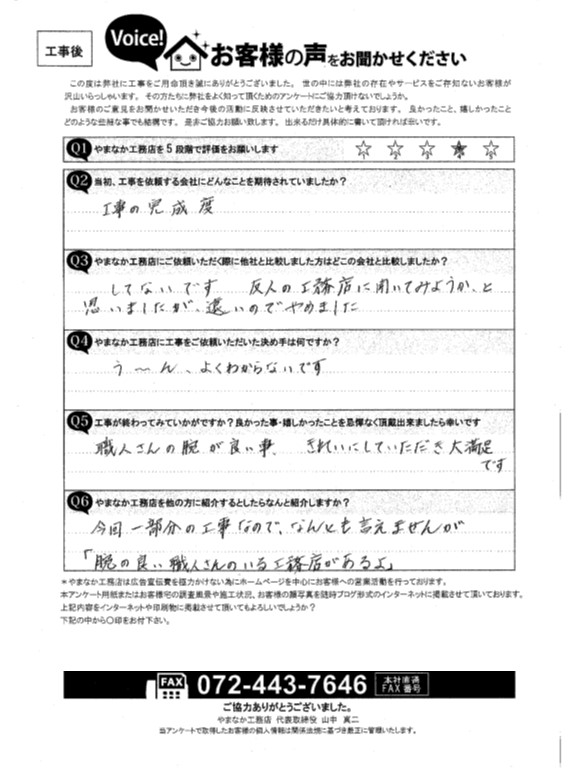 工事後
Voice!
お客様の声をお聞かせください
この度は弊社に工事をご用命頂き誠にありがとうございました。世の中には弊社の存在やサービスをご存知ないお客様が
沢山いらっしゃいます。その方たちに弊社をよく知って頂くためのアンケートにご協力頂けないでしょうか。
お客様のご意見をお聞かせいただき今後の活動に反映させていただきたいと考えております。良かったこと、嬉しかったこと
どのような些細な事でも結構です。是非ご協力お願い致します。出来るだけ具体的に書いて頂ければ幸いです。
Q1 やまなか工務店を5段階で評価をお願いします ☆ ☆ ☆ ★ ☆
Q2 当初、工事を依頼する会社にどんなことを期待されていましたか?
工事の完成度
Q3 やまなか工務店にご依頼いただく際に他社と比較しました方はどこの会社と比較しましたか?
してないです 友人の工務店に聞いてみようか、と
思いましたが、遠いのでやめました
Q4 やまなか工務店に工事をご依頼いただいた決め手は何ですか?
う〜ん、よくわからないです
Q5 工事が終わってみていかがですか?良かった事・嬉しかったことを忌憚なく頂戴出来ましたら幸いです
職人さんの腕が良い事、きれいにしていただき大満足
です
Q6 やまなか工務店を他の方に紹介するとしたらなんと紹介しますか?
今回一部分の工事なので、なんとも言えませんが
「腕の良い職人さんのいる工務店があるよ」
*やまなか工務店は広告宣伝費を極力かけない為にホームページを中心にお客様への営業活動を行っております。
本アンケート用紙またはお客様宅の調査風景や施工状況、お客様の顔写真を随時ブログ形式のインターネットに掲載させて頂いております。
上記内容をインターネットや印刷物に掲載させて頂いてもよろしいでしょうか?
下記の中から○印をお付下さい。
FAX 072-443-7646 本社直通 FAX番号
ご協力ありがとうございました。
やまなか工務店 代表取締役 山中 真二
当アンケートで取得したお客様の個人情報は関係法他に基づき厳正に管理いたします。